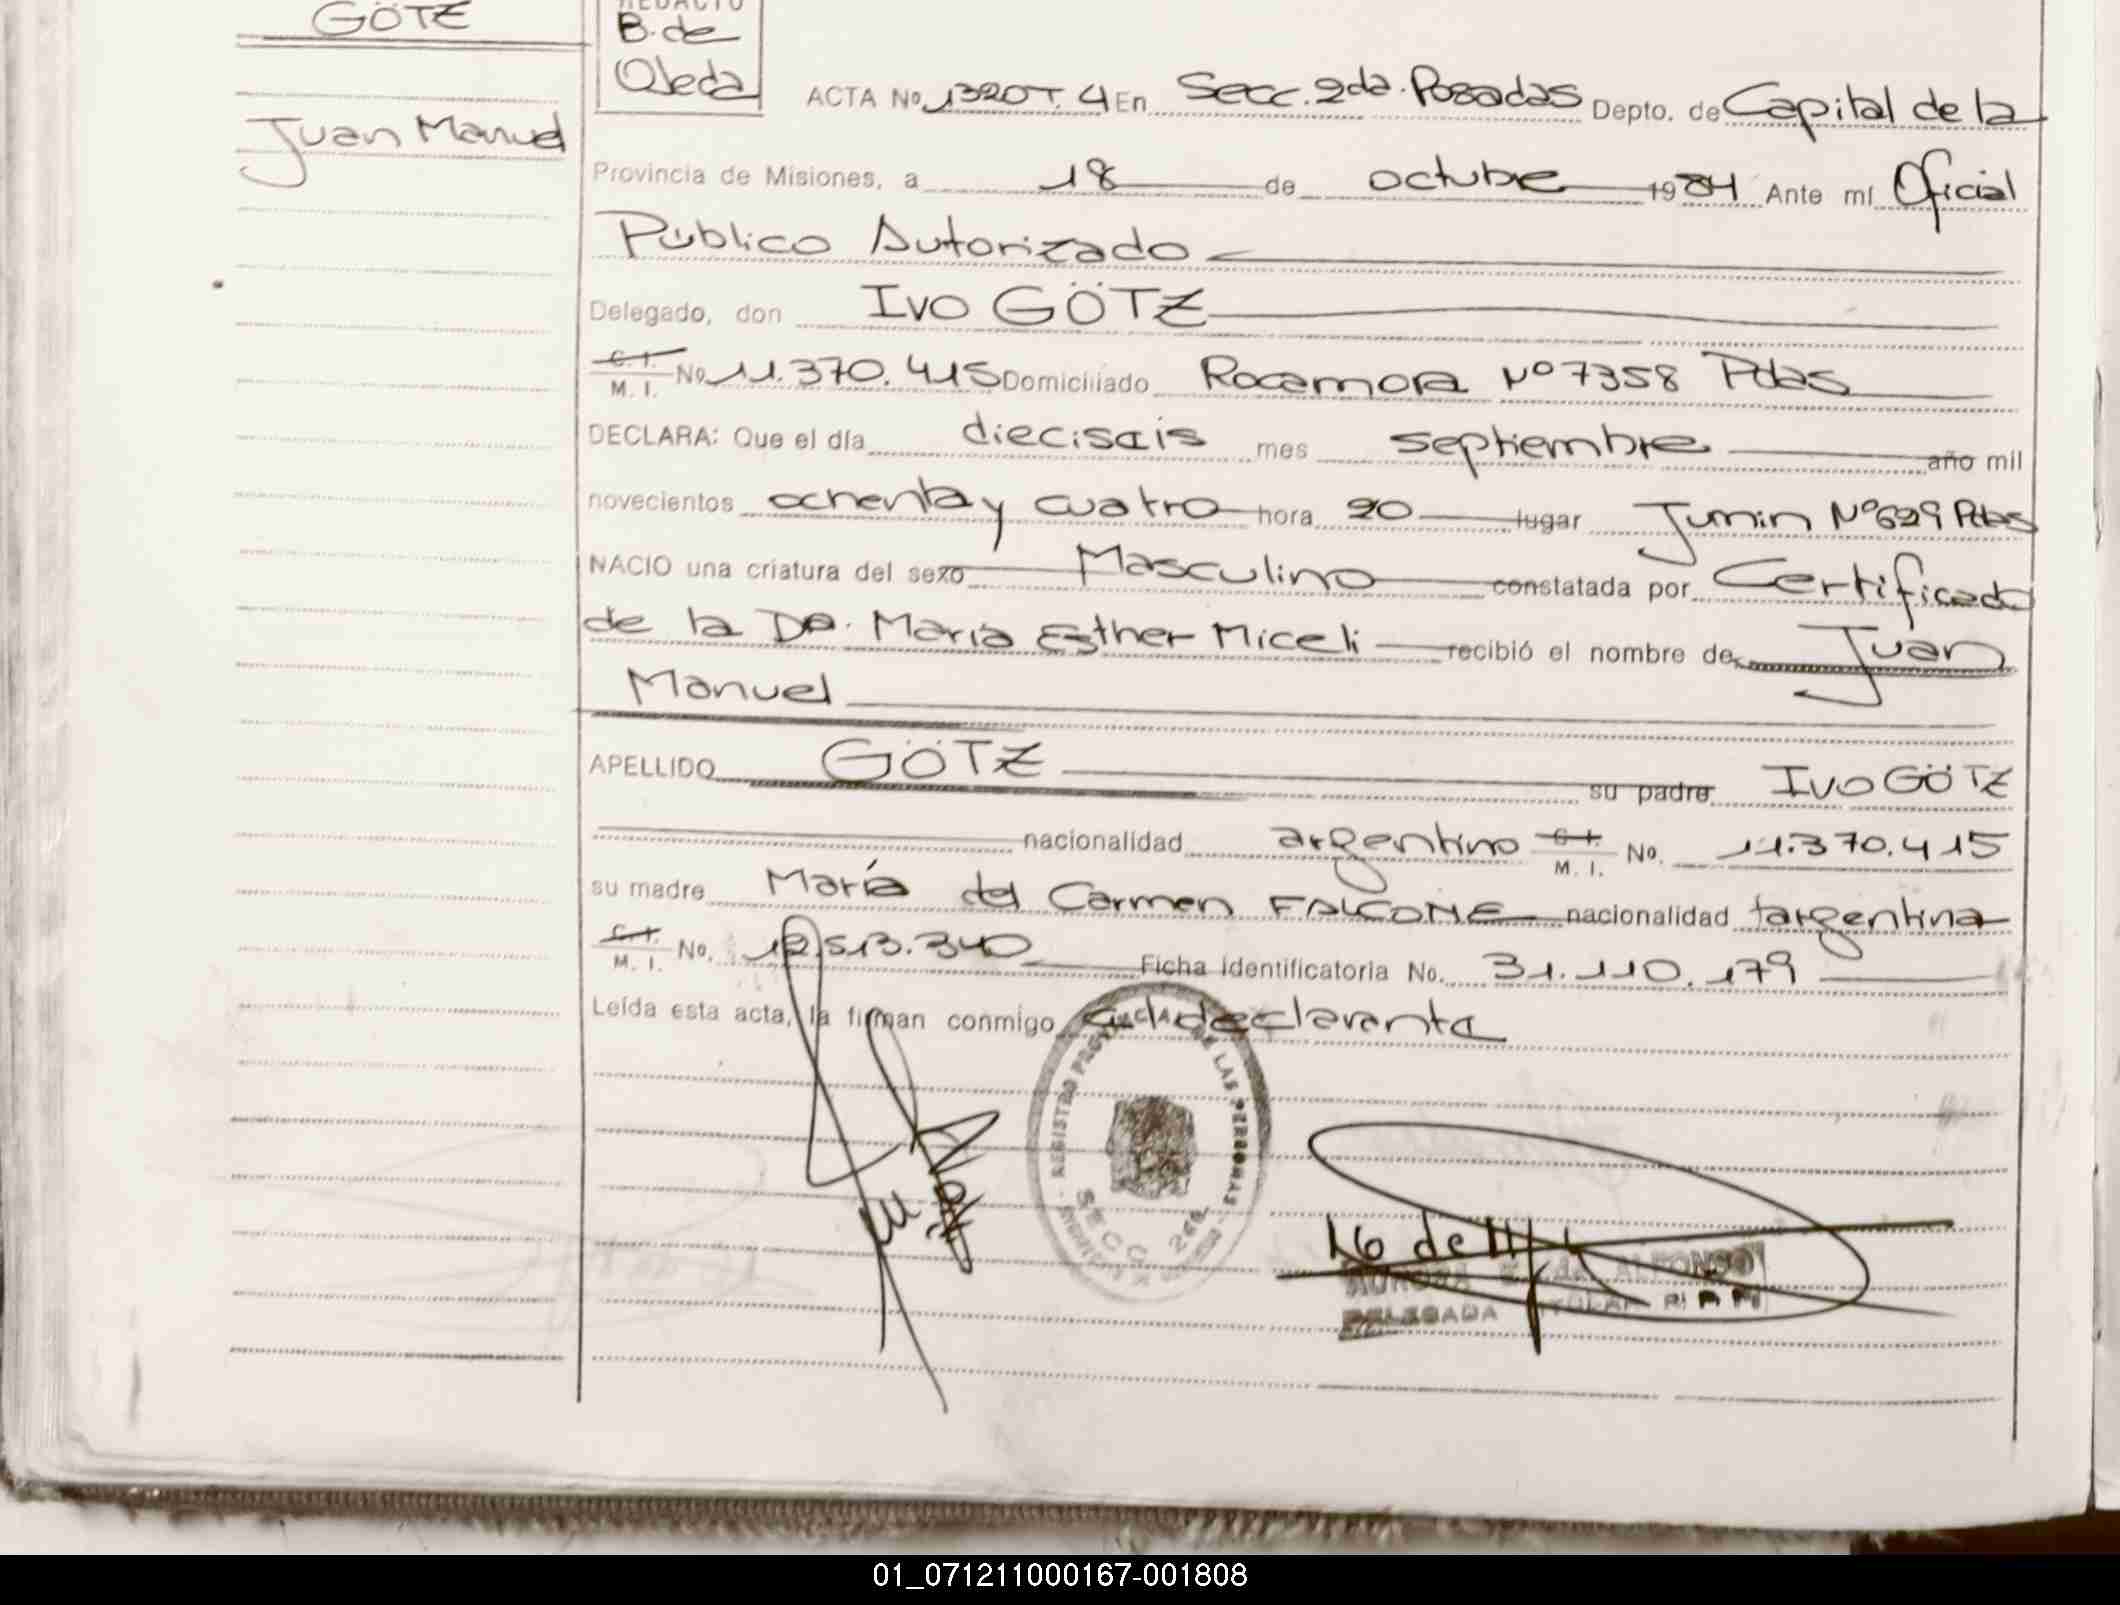 GÖTZ
REDACTO
B. de
Ojeda
Juan Manuel
ACTA No 1320 T. 4 En Secc. 2da. Posadas Depto. de Capital de la
Provincia de Misiones, a 18 de octubre 1984 Ante mí Oficial
Público Autorizado
Delegado, don Ivo GÖTZ
C. I.
M. I. No 11.370.415 Domiciliado Rocamora Nº 7358 Pdas
DECLARA: Que el día dieciseis mes septiembre año mil
novecientos ochenta y cuatro hora 20 lugar Junin Nº 629 Pdas
NACIO una criatura del sexo Masculino constatada por Certificado
de la Dra. María Esther Miceli recibió el nombre de Juan
Manuel
APELLIDO GÖTZ su padre Ivo GÖTZ
nacionalidad argentino C. I.
M. I. No. 11.370.415
su madre María del Carmen FALCONE nacionalidad argentina
C. I.
M. I. No. 12.513.340 Ficha identificatoria No. 31.110.179
Leída esta acta, la firman conmigo el declarante
REGISTRO PROVINCIAL DE LAS PERSONAS
SECC. 2da.
MISIONES
16 de
ALFONSO
DELEGADA TITULAR
01_071211000167-001808